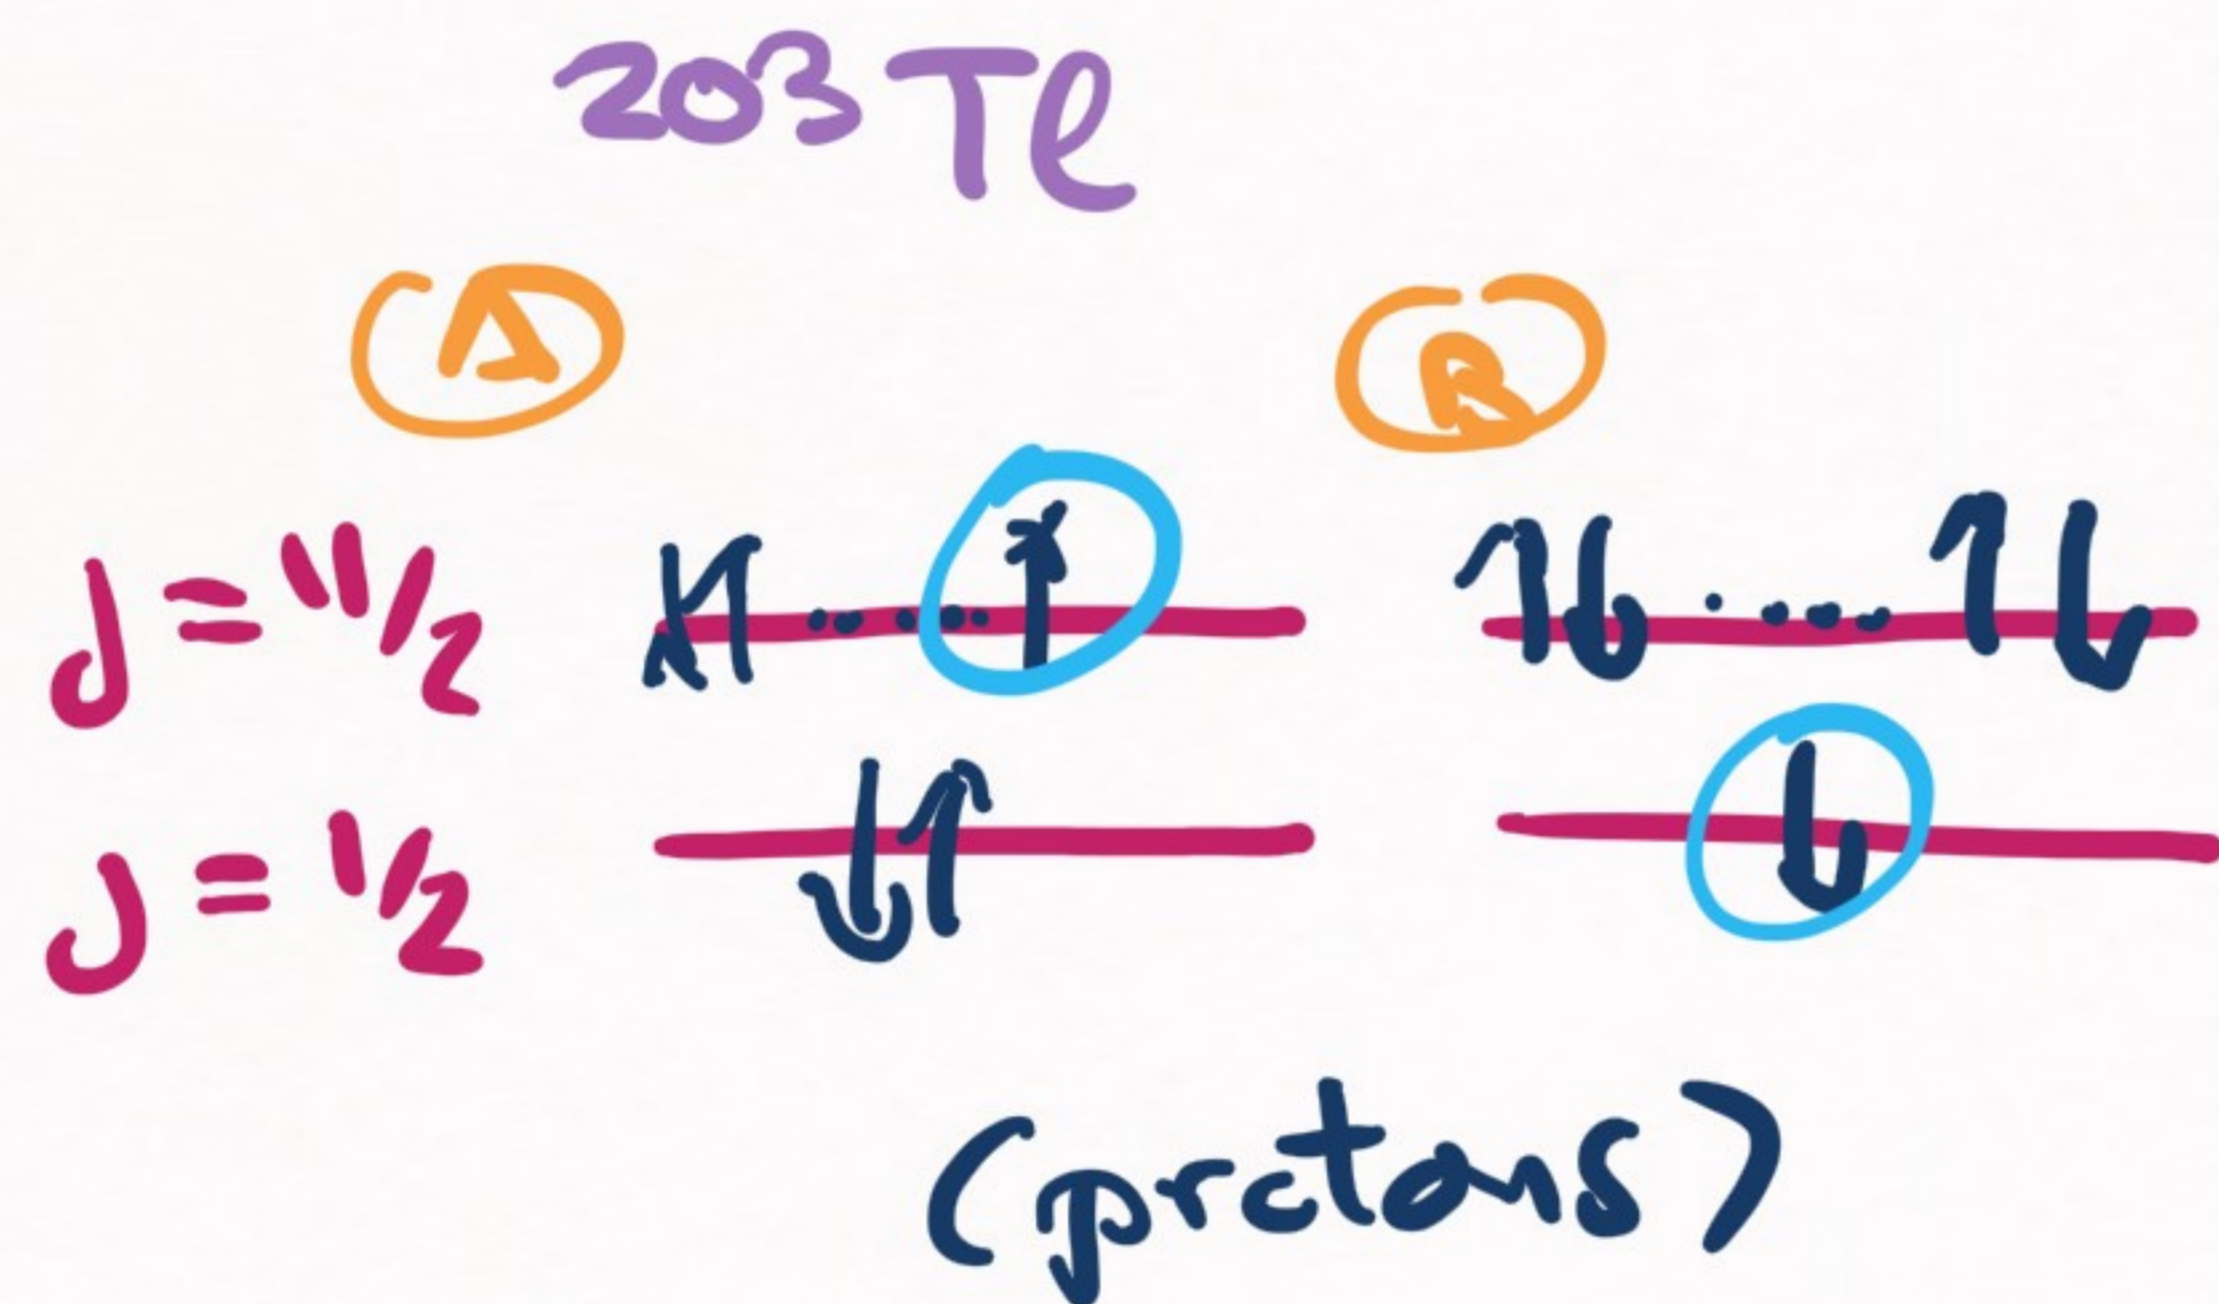 203 Tl
A B
J = 11/2
J = 1/2
(protons)